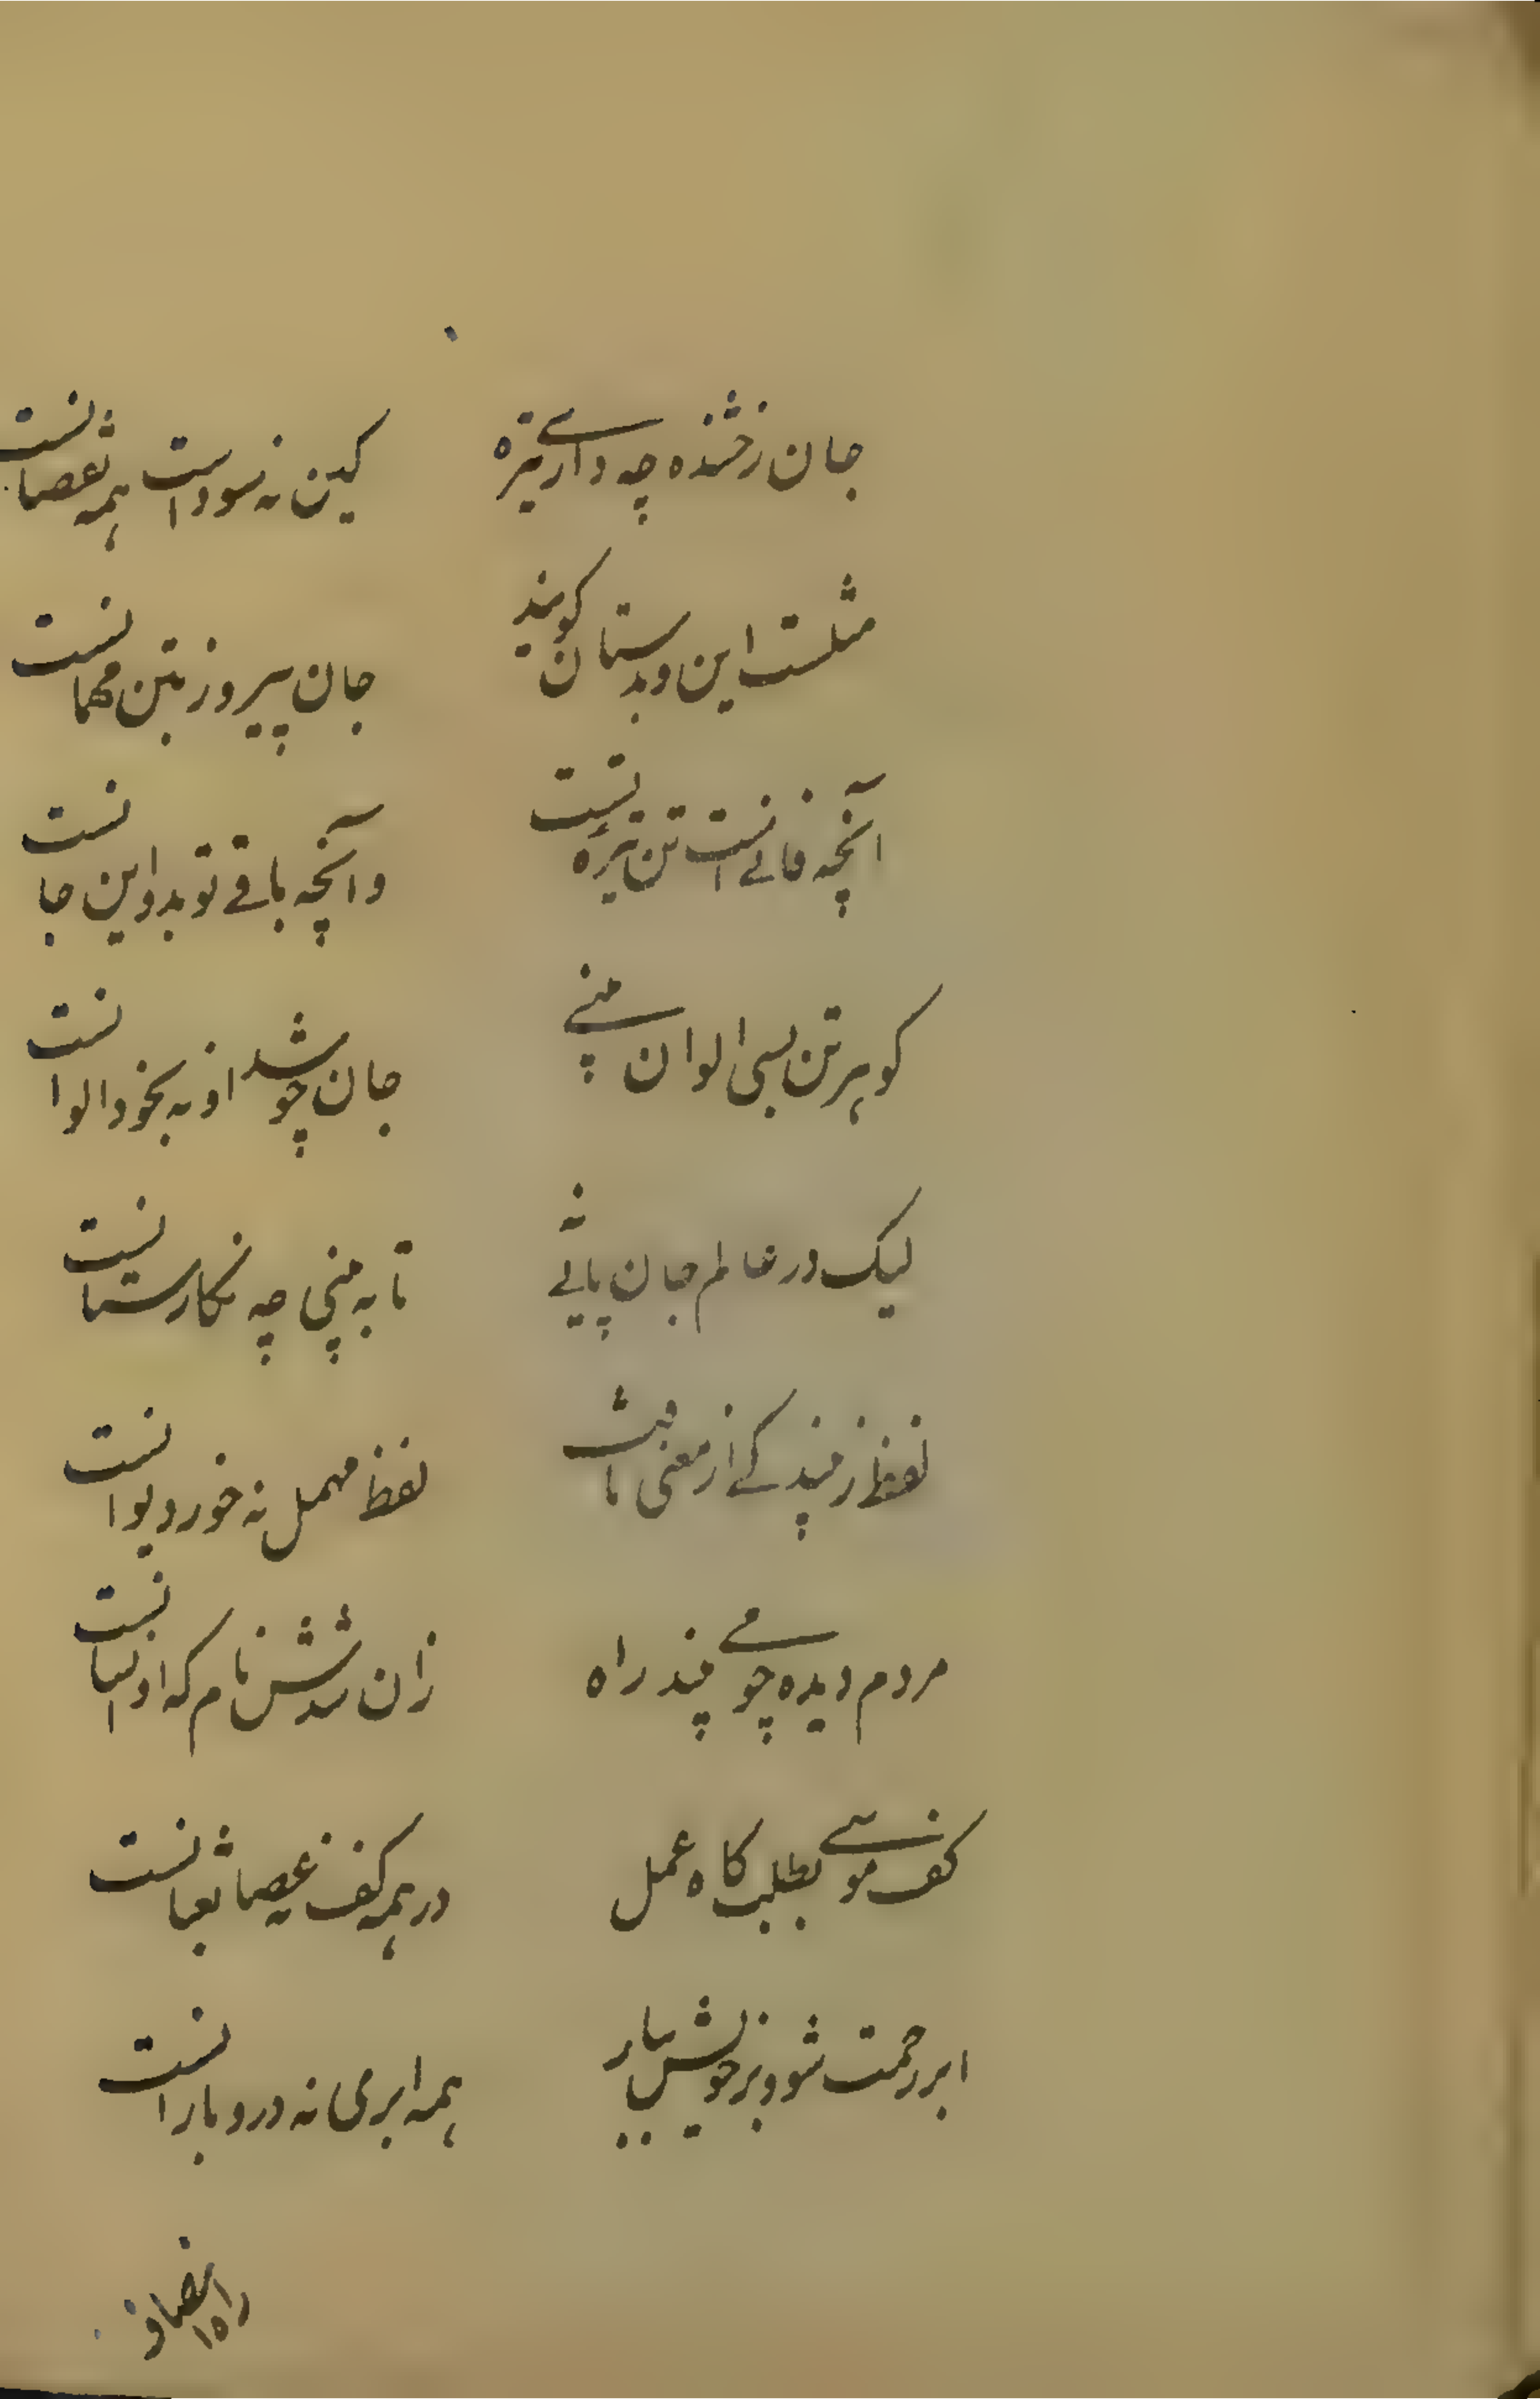 جان رخشنده چه داری تیره کین نه سوداست همه نقصانست
مثلست این و بدستان کویند جان پیروز بتن مهمانست
آنچه فانی است تن تیره تست وآنچه باقی تو بدو این جانست
کوهر تن بسی الوان بینے جان چو شد او نه بخود الوانست
لیک در عالم جان پائے نه تا به بینی چه نکارستانست
لفظ مهمل نه خور دیوانست
مردم دیده چو مے بیند راه زان شدش نام که او انسانست
کف موسے بطلب کاه عمل در همه کف نه عصا ثعبانست
ابر رحمت شو و بر خویش ببار همه ابری نه درو بارانست
راه انصاف